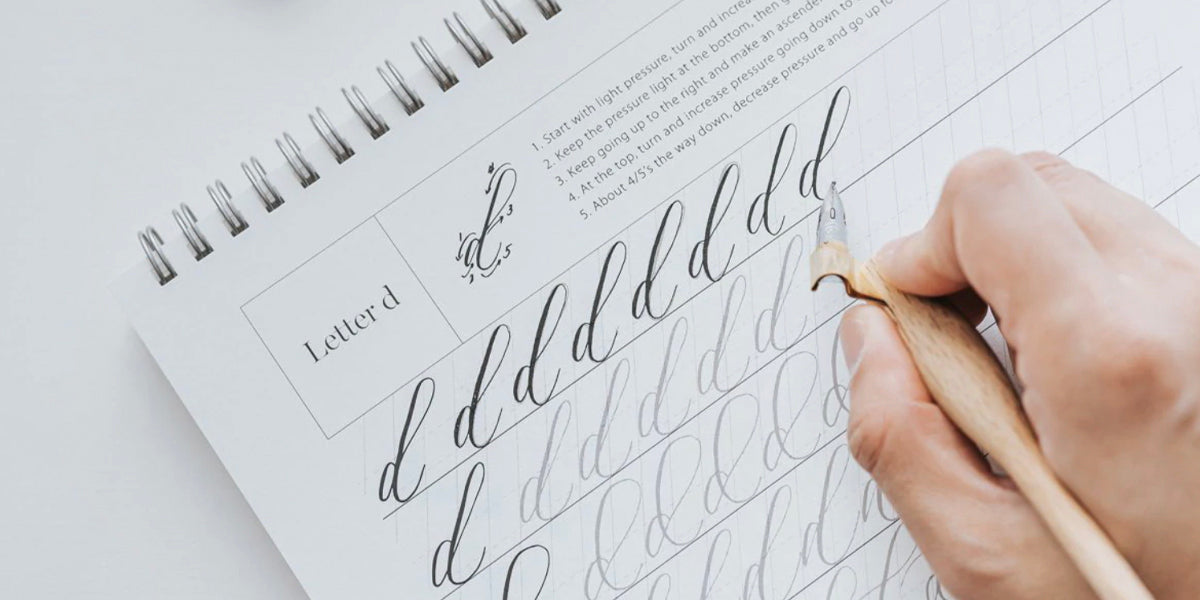 1. Start with light pressure, turn and increa
2. Keep the pressure light at the bottom, then
3. Keep going up to the right and make an ascende
4. At the top, turn and increase pressure going down to
5. About 4/5's the way down, decrease pressure and go up
Letter d
1 3 5
d d d d d d d d
d d d d d d
d d d d d
d d d